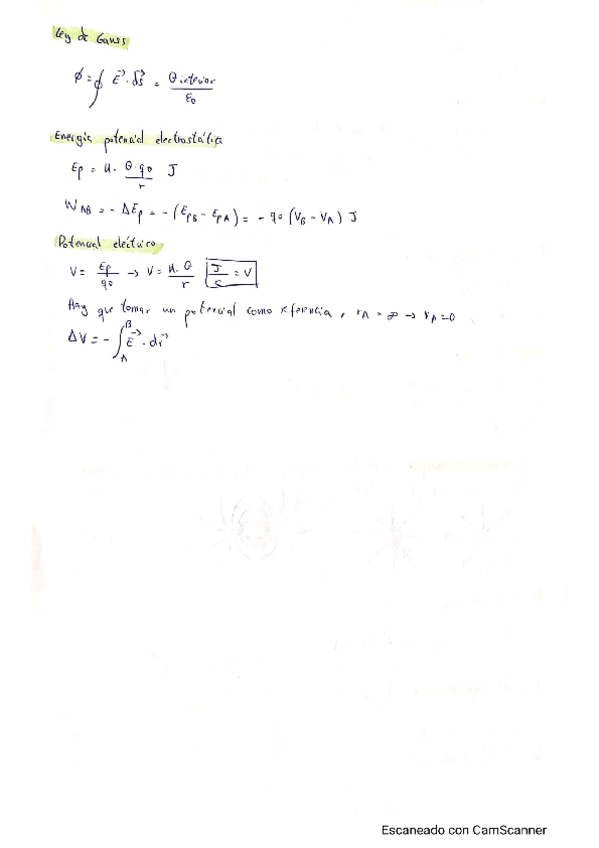 Ley de Gauss
ϕ = ∮ E⃗ · dS⃗ = Q interior / ε₀
Energía potencial electrostática
Ep = K · Q · q₀ / r J
W_AB = - ΔEp = - (E_pB - E_pA) = - q₀ (V_B - V_A) J
Potencial eléctrico
V = Ep / q₀ → V = K · Q / r J / C = V
Hay que tomar un potencial como xferencia, r_A = ∞ → V_A = 0
ΔV = - ∫_A^B E⃗ · dr⃗
Escaneado con CamScanner